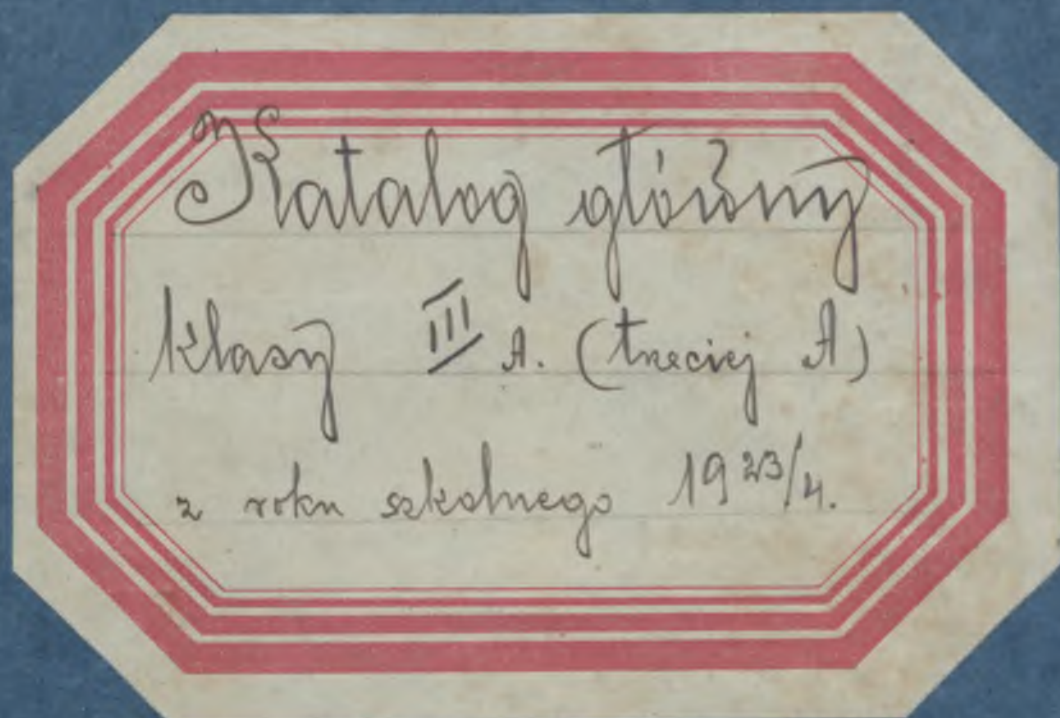 Katalog główny
klasy III A. (trzeciej A)
z roku szkolnego 1923/4.